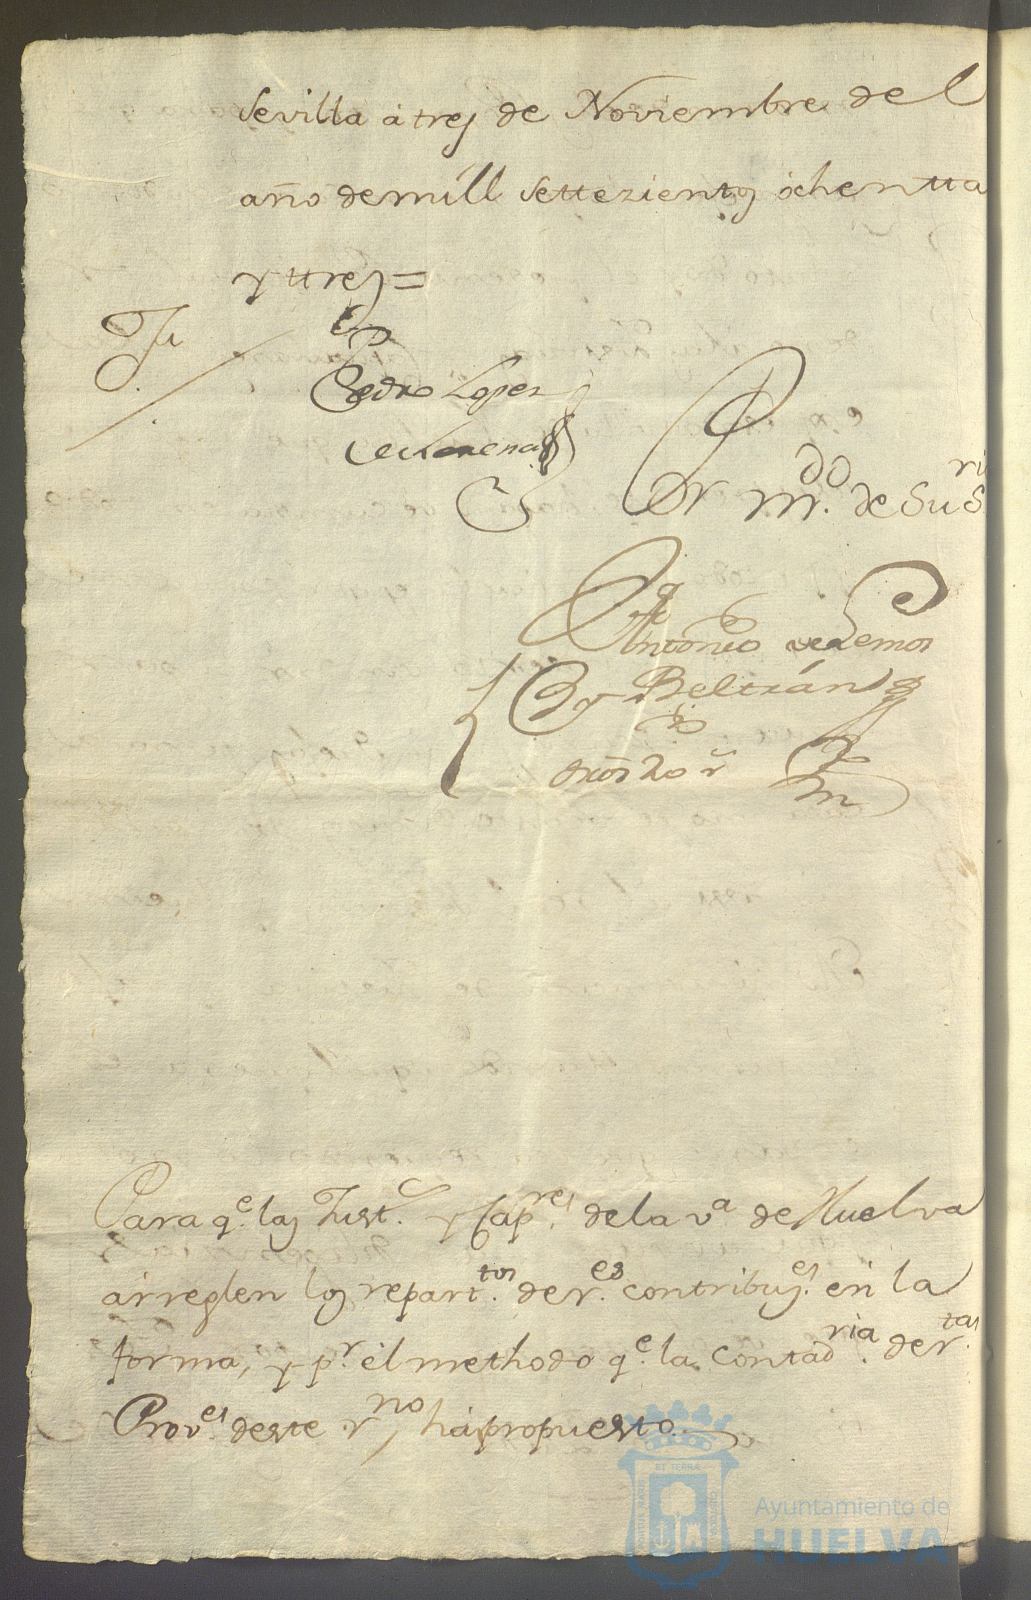 Sevilla á tres de Noviembre del
año de mill settezientos óchentta
y ttres =
Pedro Lopez
Dr Mdo. de Su Sria
Antonio de Lemos
y Beltrán
Para qe. las Just.s y Capres. de la va de Huelva
árreglen los reparttos. de res. contribuyes. én la
forma, y pr. él methodo qe. la contadria. de rtas
Provs. deste rno, há propuesto.
Ayuntamiento de
HUELVA